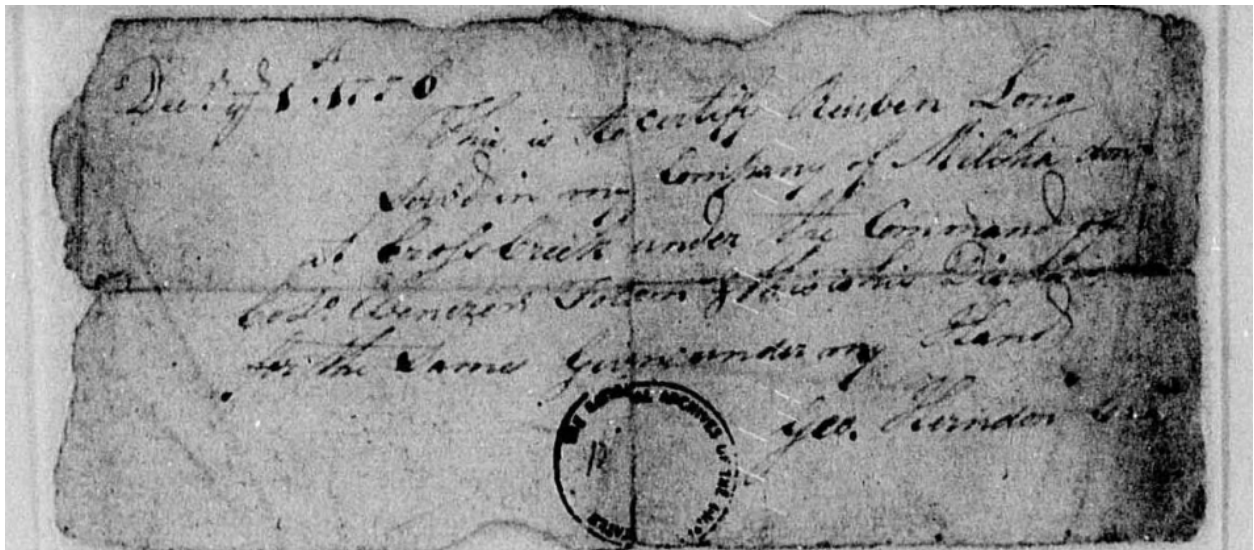 Decr. ye 1st. 1776
This is to certify Reuben Long
Serv'd in my Company of Militia
at Cross Creek under the Command of
Colo Ebenezer Folsom & this is his
for the Same Given under my Hand
Geo. Herndon
THE NATIONAL ARCHIVES OF THE UNITED STATES